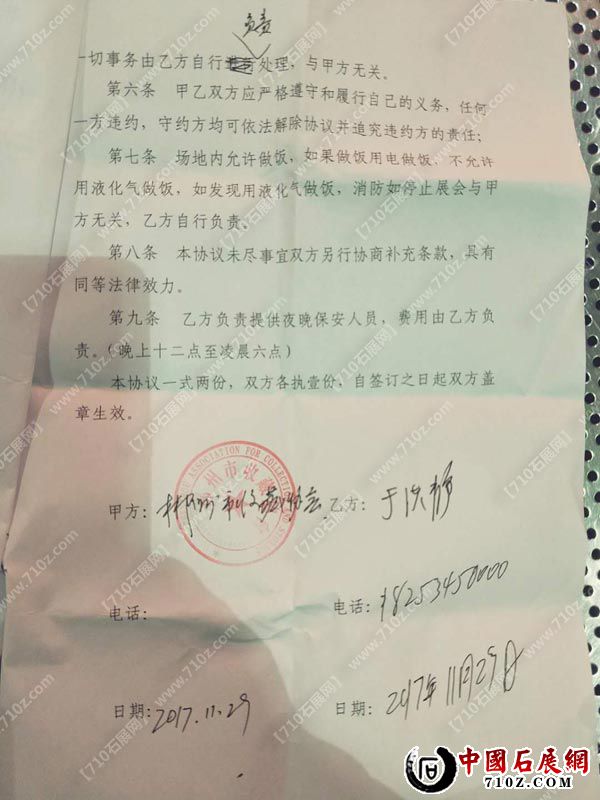 负责
一切事务由乙方自行处理，与甲方无关。
第六条 甲乙双方应严格遵守和履行自己的义务，任何
一方违约，守约方均可依法解除协议并追究违约方的责任；
第七条 场地内允许做饭，如果做饭用电做饭，不允许
用液化气做饭，如发现用液化气做饭，消防如停止展会与甲
方无关，乙方自行负责。
第八条 本协议未尽事宜双方另行协商补充条款，具有
同等法律效力。
第九条 乙方负责提供夜晚保安人员，费用由乙方负
责。（晚上十二点至凌晨六点）
本协议一式两份，双方各执壹份，自签订之日起双方盖
章生效。
ASSOCIATION FOR COLLECTION
州市收藏
甲方：郴州市收藏协会 乙方：于洪静
电话： 电话：18253450000
日期：2017.11.29 日期：2017年11月29日
【710石展网】
www.710z.com
中國石展網
www.710z.com